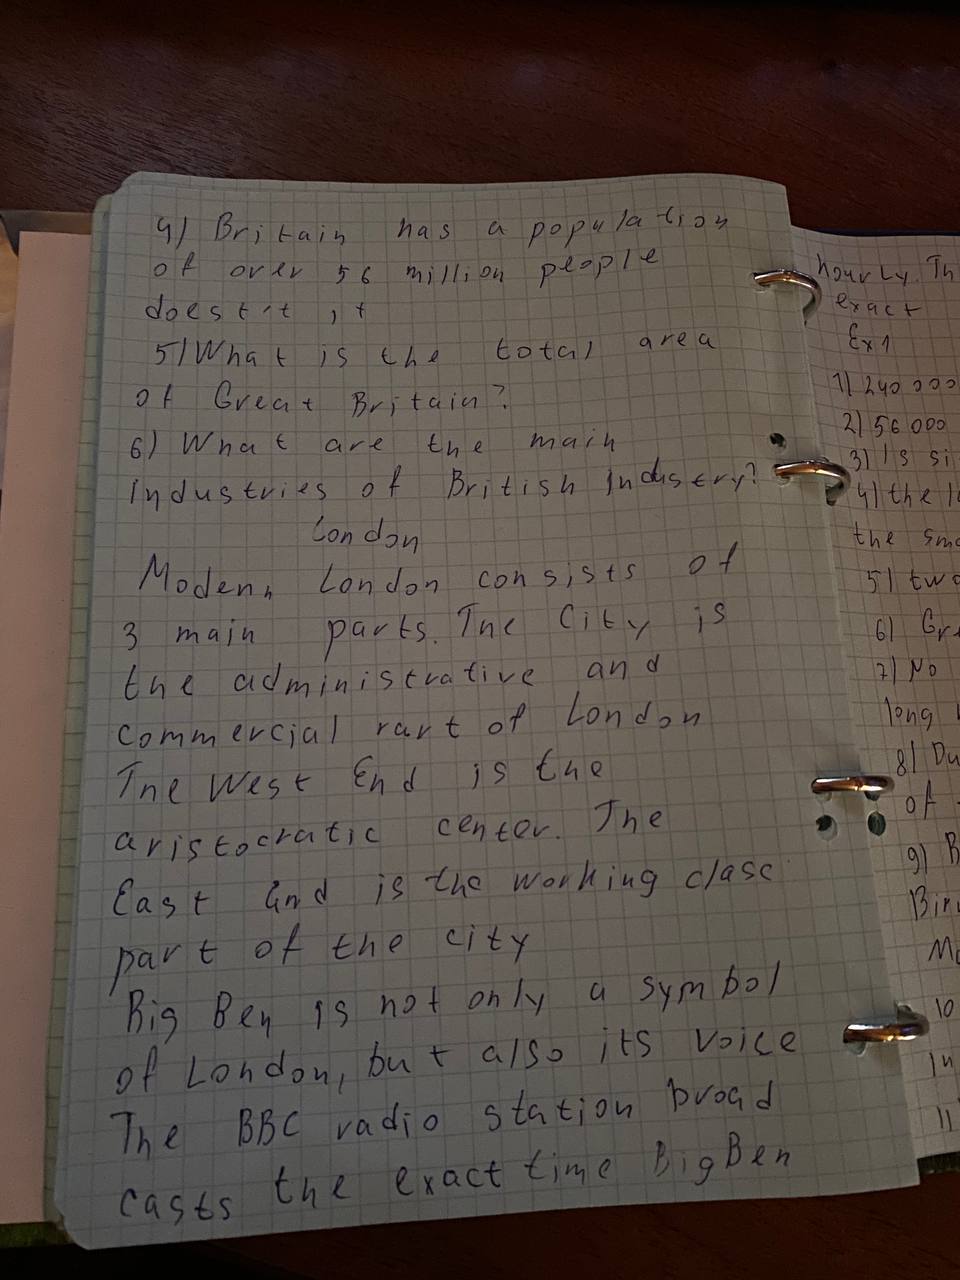 4) Britain has a population
of over 56 million people
doest't it
5) What is the total area
of Great Britain?
6) What are the main
industries of British industry?
London
Modern London consists of
3 main parts. The City is
the administrative and
commercial rart of London
The West End is the
aristocratic center. The
East End is the working clasc
part of the city
Big Ben is not only a symbol
of London, but also its voice
The BBC radio station broad
casts the exact time Big Ben
hourly. Th
exact
Ex 1
1) 240 000
2) 56 000
3) Is si
4) the l
the sma
5) two
6) Gre
7) No
long
8) Du
of
9) B
Bir
Ma
10
In
11